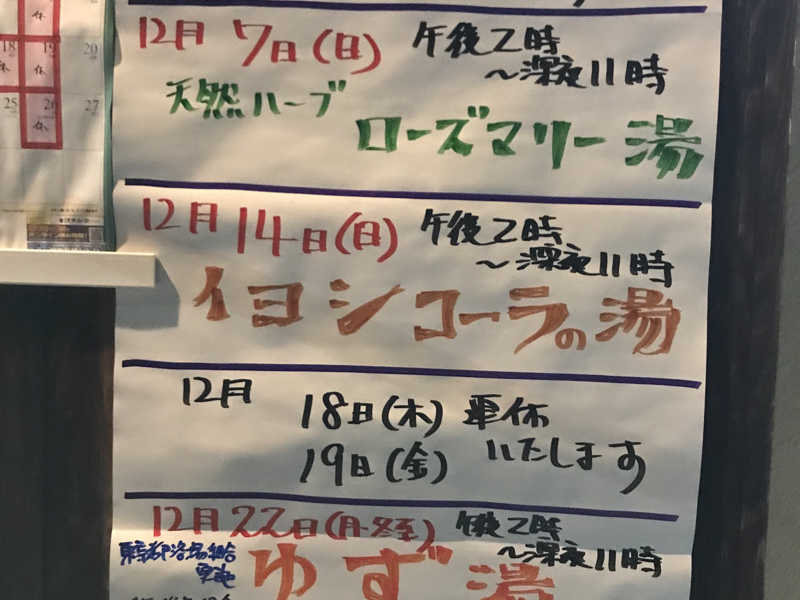 休
18 19 20
休 休
25 26 27
休
12月 7日(日) 午後2時
~深夜11時
天然ハーブ
ローズマリー湯
12月 14日(日) 午後2時
~深夜11時
イヨシコーラの湯
12月 18日(木) 連休
19日(金) いたします
12月22日(月・冬至) 午後2時
~深夜11時
東京都浴場組合
ゆず湯